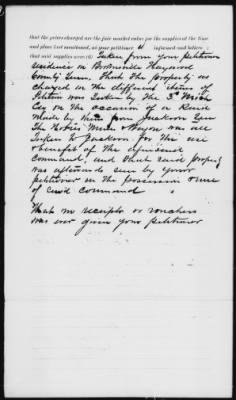 that the prices charged are the fair market value for the supplies at the time
and place last mentioned, as your petitioner is informed and believes
that said supplies were (6) Taken from your petitioners
residence in Brownsville Haywood
County Tenn. That the property as
charged in the different items of
petition was taken by the 3d Mich
Cav on the occasion of a Raid
made by them from Jackson Tenn
The Horses Mules & Wagon was all
taken to Jackson for the use
& benefit of the aforesaid
command, and that said property
was afterwards seen by your
petitioner in the possession & use
of said command
That no receipts or vouchers
was ever given your petitioner